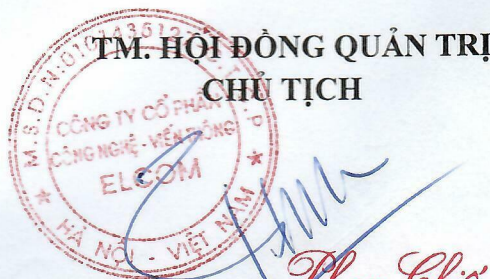 TM. HỘI ĐỒNG QUẢN TRỊ
CHỦ TỊCH
CÔNG TY CỔ PHẦN
CÔNG NGHỆ - VIỄN THÔNG
ELCOM
HÀ NỘI - VIỆT NAM
M.S.D.N: